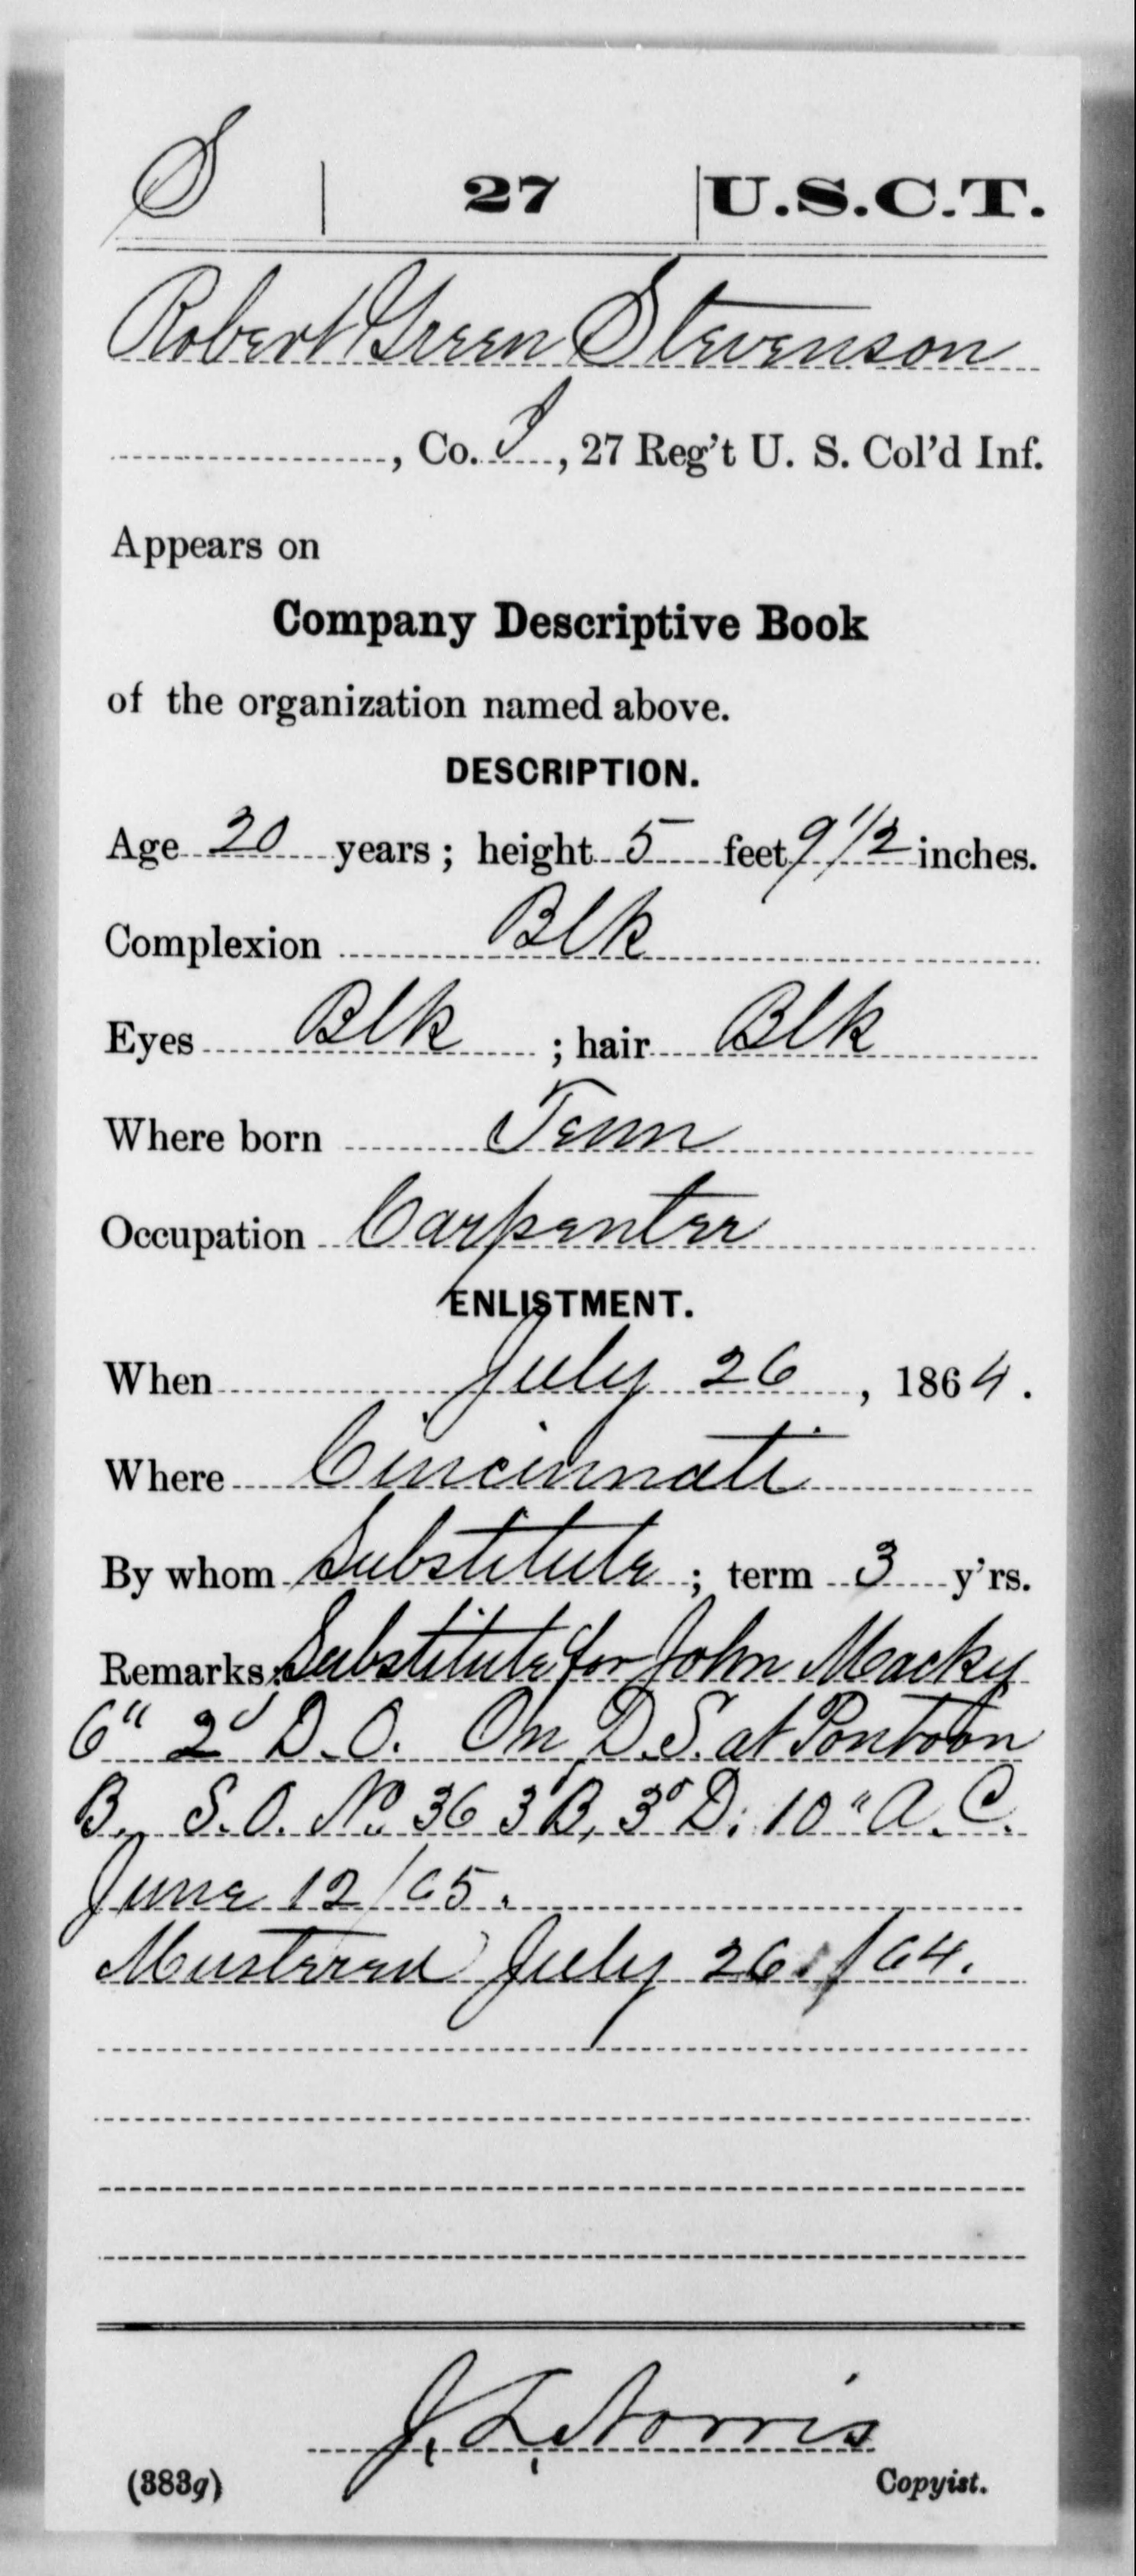 S | 27 | U.S.C.T.
Robert Green Stevenson
, Co. I, 27 Reg't U. S. Col'd Inf.
Appears on
Company Descriptive Book
of the organization named above.
DESCRIPTION.
Age 20 years; height 5 feet 9 1/2 inches.
Complexion Blk
Eyes Blk; hair Blk
Where born Tenn
Occupation Carpenter
ENLISTMENT.
When July 26, 1864.
Where Cincinnati
By whom Substitute; term 3 y'rs.
Remarks: Substitute for John Macky
6" 2d D. O. On D. S. at Pontoon
B. S. O. No. 36 3d B, 3d D. 10" A. C.
June 12/65.
Mustered July 26/64.
J. L. Norris
(383g) Copyist.